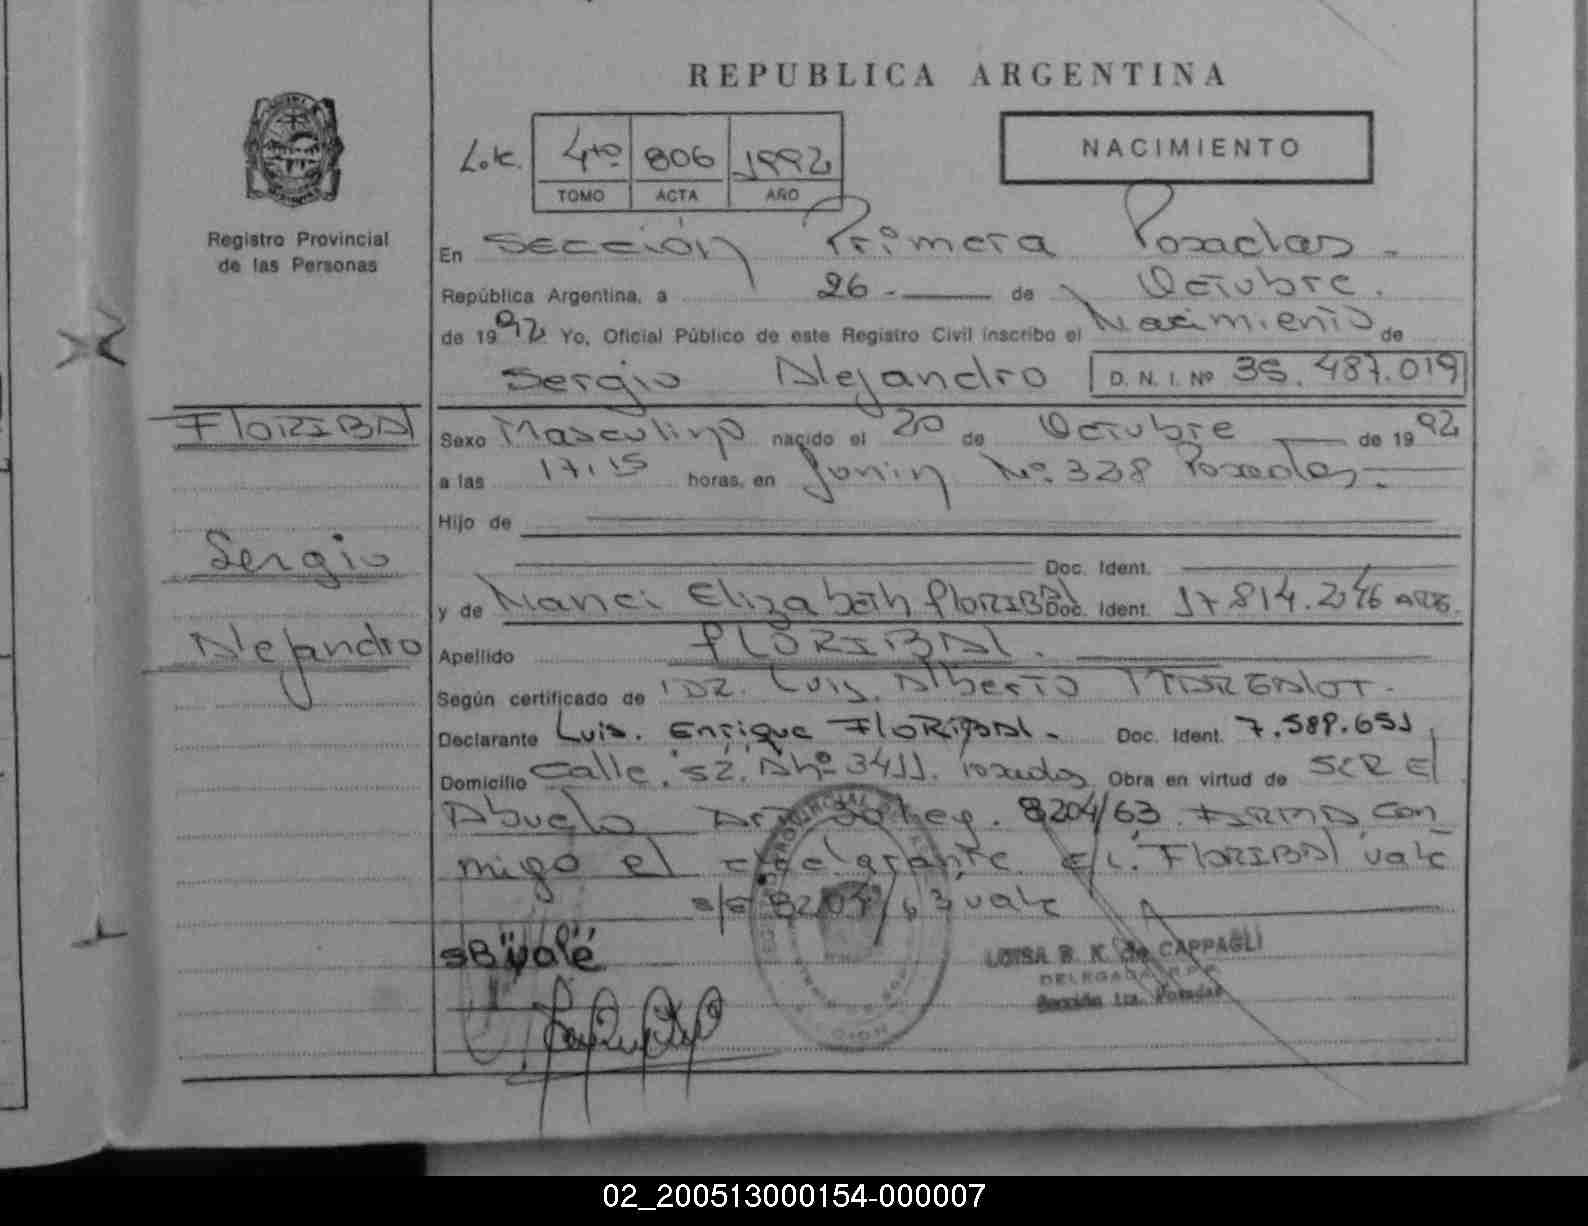 REPUBLICA ARGENTINA
NACIMIENTO
4to 806 1992
TOMO ACTA AÑO
Registro Provincial
de las Personas
En Sección Primera Posadas.
República Argentina, a 26 de Octubre.
de 1992 Yo, Oficial Público de este Registro Civil inscribo el Nacimiento de
Sergio Alejandro D. N. I. Nº 36.487.019
FLORIBAL
Sexo Masculino nacido el 20 de Octubre de 1992
a las 17,15 horas, en Junin Nº 338 Posadas.
Hijo de
Sergio
Doc. Ident.
y de Nanci Elizabeth FLORIBAL Doc. Ident. 17.814.246 ARG.
Alejandro
Apellido FLORIBAL.
Según certificado de DR. Luis Alberto
Declarante Luis Enrique FLORIBAL. Doc. Ident. 7.589.651
Domicilio Calle 52 Nº 3411. Posadas Obra en virtud de SER El
Abuelo Ley. 8204/63. FIRMA con
migo el E/L. FLORIBAL vale
s/r 8204/63 vale
SB "vale"
LUISA B. K. de CAPPAGLI
DELEGADA R.P.P.
Sección 1ra. Posadas
02_200513000154-000007